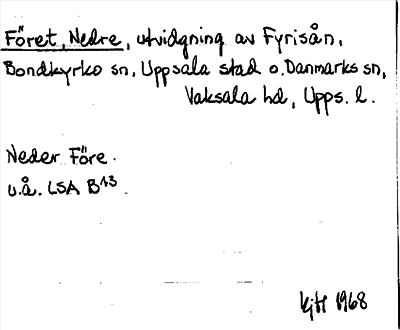 Föret, Nedre, utvidgning av Fyrisån,
Bondkyrko sn, Uppsala stad o. Danmarks sn,
Vaksala hd, Upps. l.
Neder Före.
u.å. LSA B13.
1968